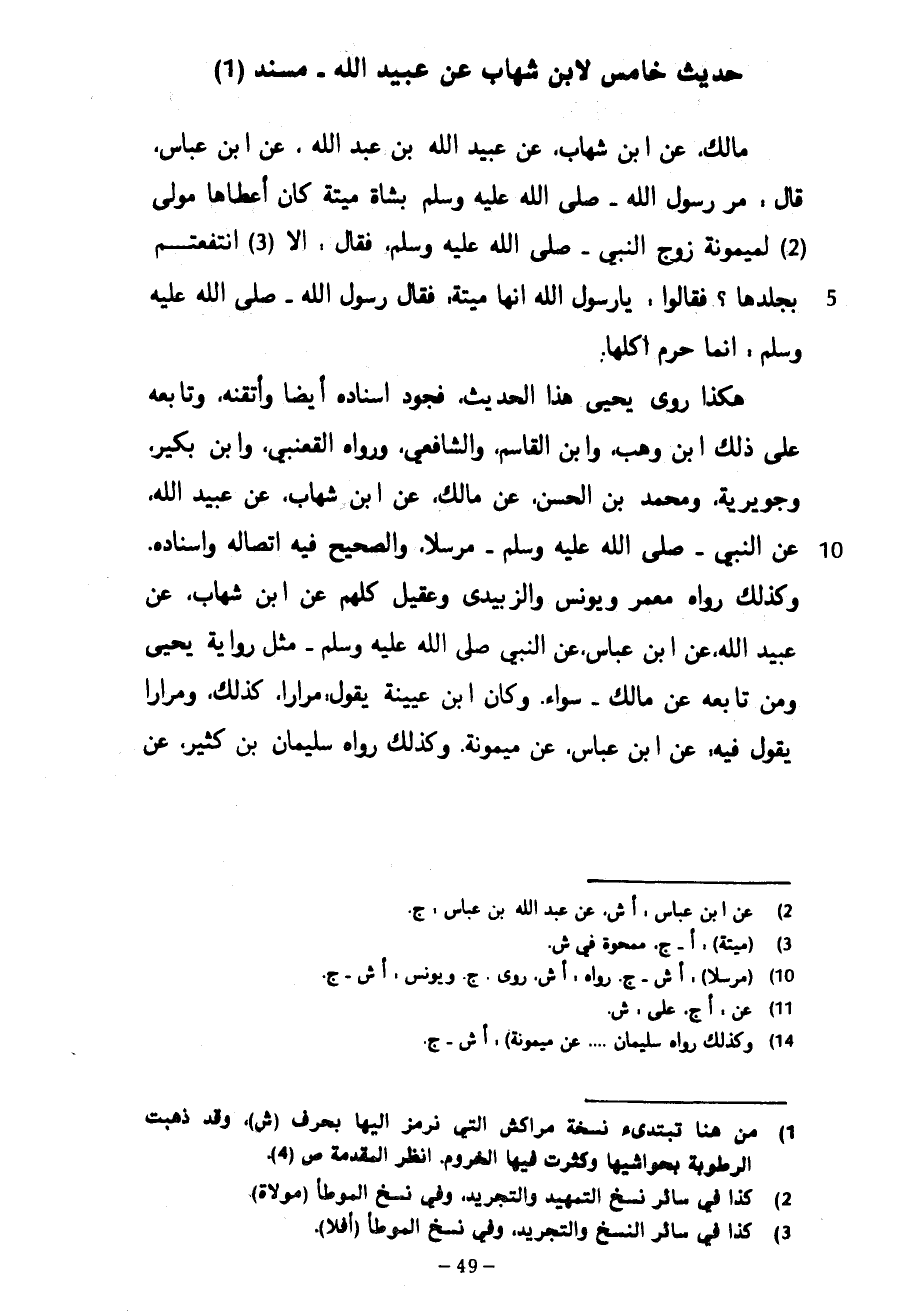 حديث خامس لابن شهاب عن عبيد الله ـ مسند (1)
مالك، عن ابن شهاب، عن عبيد الله بن عبد الله ، عن ابن عباس،
قال : مر رسول الله ـ صلى الله عليه وسلم بشاة ميتة كان أعطاها مولى
(2) لميمونة زوج النبي ـ صلى الله عليه وسلم، فقال : الا (3) انتفعتـــم
5 بجلدها ؟ فقالوا : يارسول الله انها ميتة، فقال رسول الله ـ صلى الله عليه
وسلم : انما حرم أكلها.
هكذا روى يحيى هذا الحديث، فجود اسناده أيضا وأتقنه، وتابعه
على ذلك ابن وهب، وابن القاسم، والشافعي، ورواه القعنبي، وابن بكير،
وجويرية، ومحمد بن الحسن، عن مالك، عن ابن شهاب، عن عبيد الله،
10 عن النبي ـ صلى الله عليه وسلم ـ مرسلا، والصحيح فيه اتصاله واسناده.
وكذلك رواه معمر ويونس والزبيدى وعقيل كلهم عن ابن شهاب، عن
عبيد الله،عن ابن عباس،عن النبي صلى الله عليه وسلم ـ مثل رواية يحيى
ومن تابعه عن مالك ـ سواء. وكان ابن عيينة يقول،مرارا، كذلك، ومرارا
يقول فيه، عن ابن عباس، عن ميمونة. وكذلك رواه سليمان بن كثير، عن
2) عن ابن عباس : أ ش، عن عبد الله بن عباس : ج.
3) (ميتة) : أ ـ ج، ممحوة في ش.
10) (مرسلا) : أ ش ـ ج. رواه : أ ش، روى . ج. ويونس : أ ش ـ ج.
11) عن : أ ج، على : ش.
14) وكذلك رواه سليمان .... عن ميمونة) : أ ش ـ ج.
1) من هنا تبتدىء نسخة مراكش التي نرمز اليها بحرف (ش)، وقد ذهبت
الرطوبة بحواشيها وكثرت فيها الخروم. انظر المقدمة ص (4).
2) كذا في سائر نسخ التمهيد والتجريد، وفي نسخ الموطأ (مولاة).
3) كذا في سائر النسخ والتجريد، وفي نسخ الموطأ (أفلا).
– 49 –